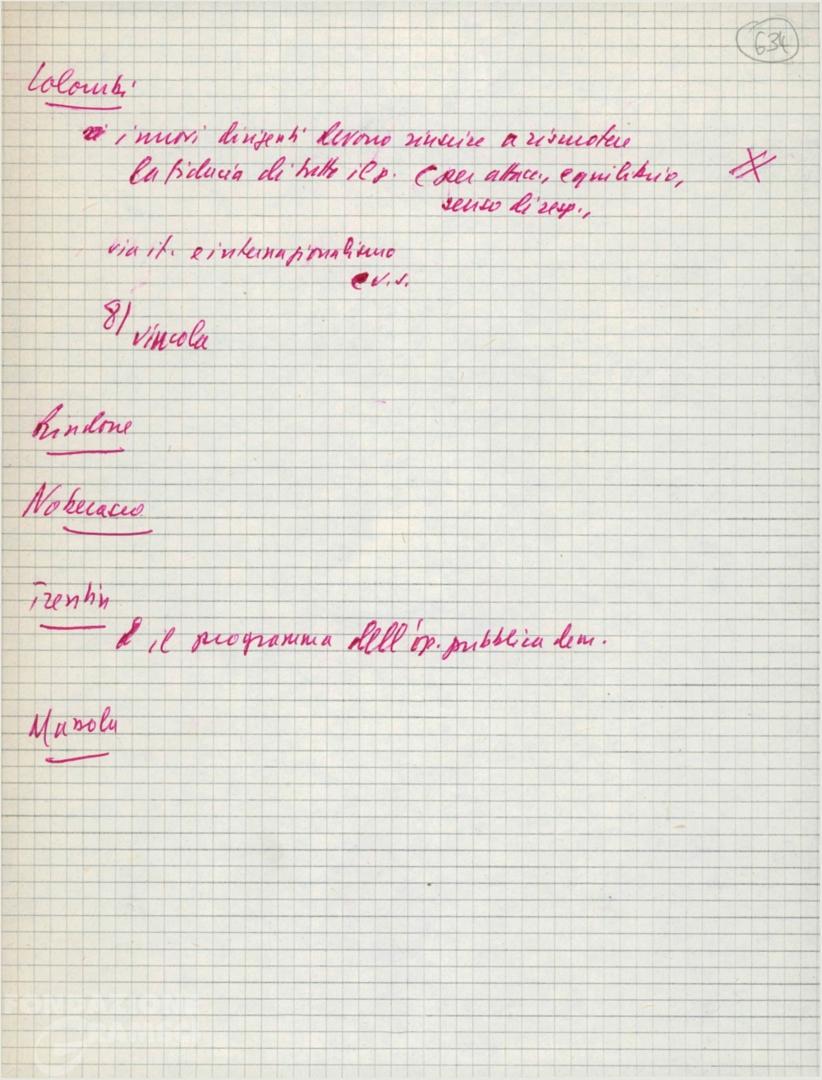 634
Colombi
i nuovi dirigenti devono riuscire a riscuotere
la fiducia di tutto il p. (per attacc., equilibrio,
senso di resp.,
via it. e internazionalismo
e v.s.
8) vincola
Rindone
Noberasco
Trentin
è il programma dell'op. pubblica dem.
Massola
FONDAZIONE
GRAMSCI